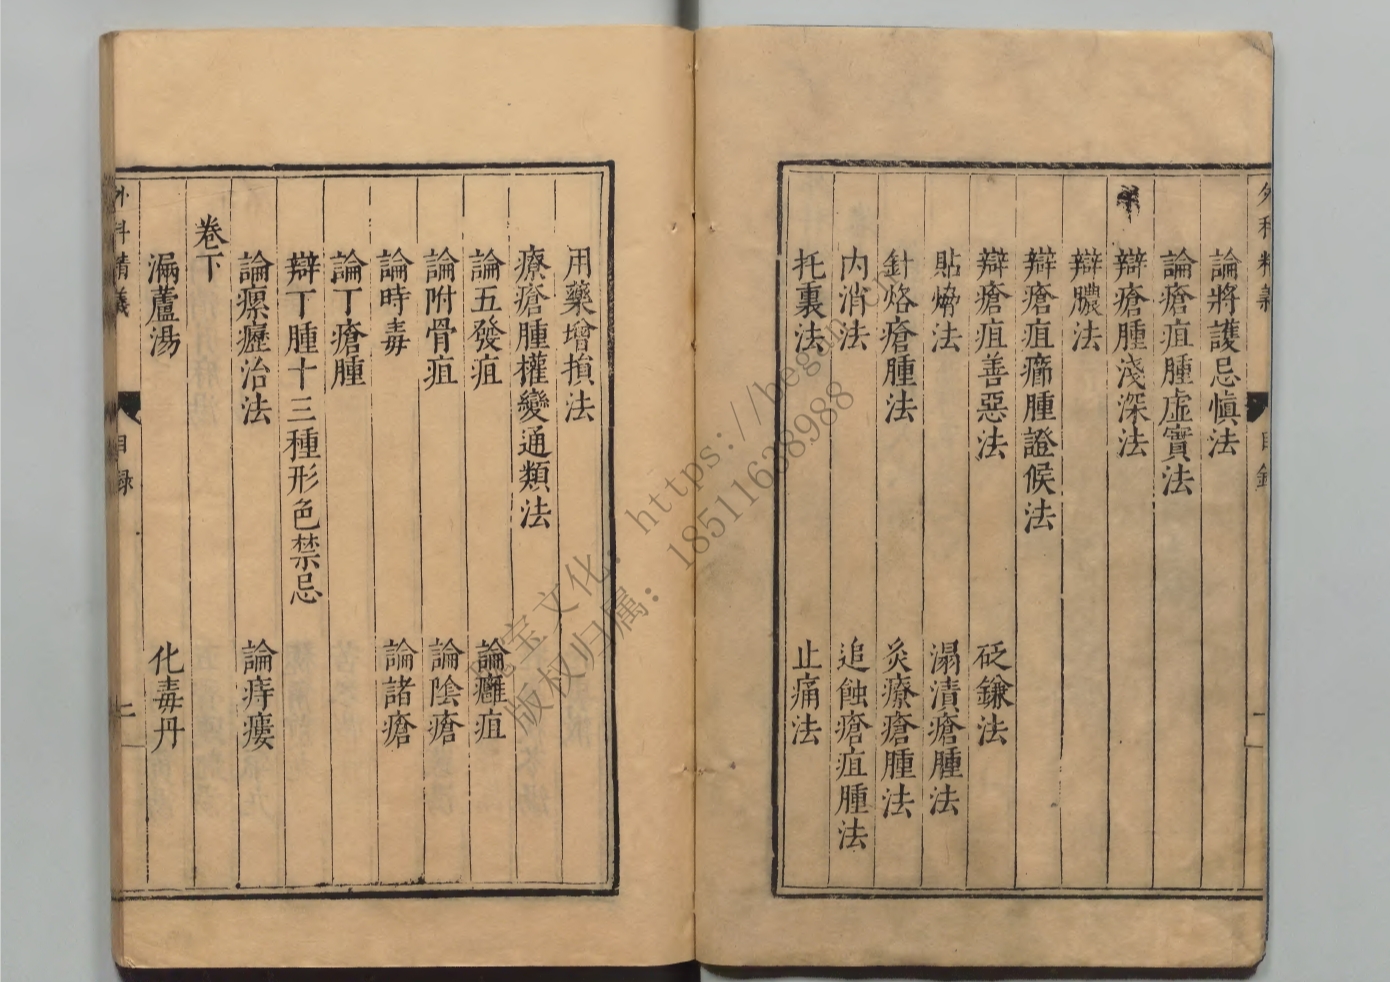 論將護忌愼法
論瘡疽腫虛實法
辯瘡腫淺深法
辯膿法
辯瘡疽㾓腫證候法
辯瘡疽善惡法
砭鎌法
貼㷒法
溻漬瘡腫法
針烙瘡腫法
灸療瘡腫法
内消法
追蝕瘡疽腫法
托裏法
止痛法
用藥增損法
療瘡腫權變通類法
論五發疽
論癰疽
論附骨疽
論陰瘡
論時毒
論諸瘡
論丁瘡腫
辯丁腫十三種形色禁忌
論瘰癧治法
論痔瘻
卷下
漏蘆湯
化毒丹
外科精義
目録
二
版权归属：18511638988